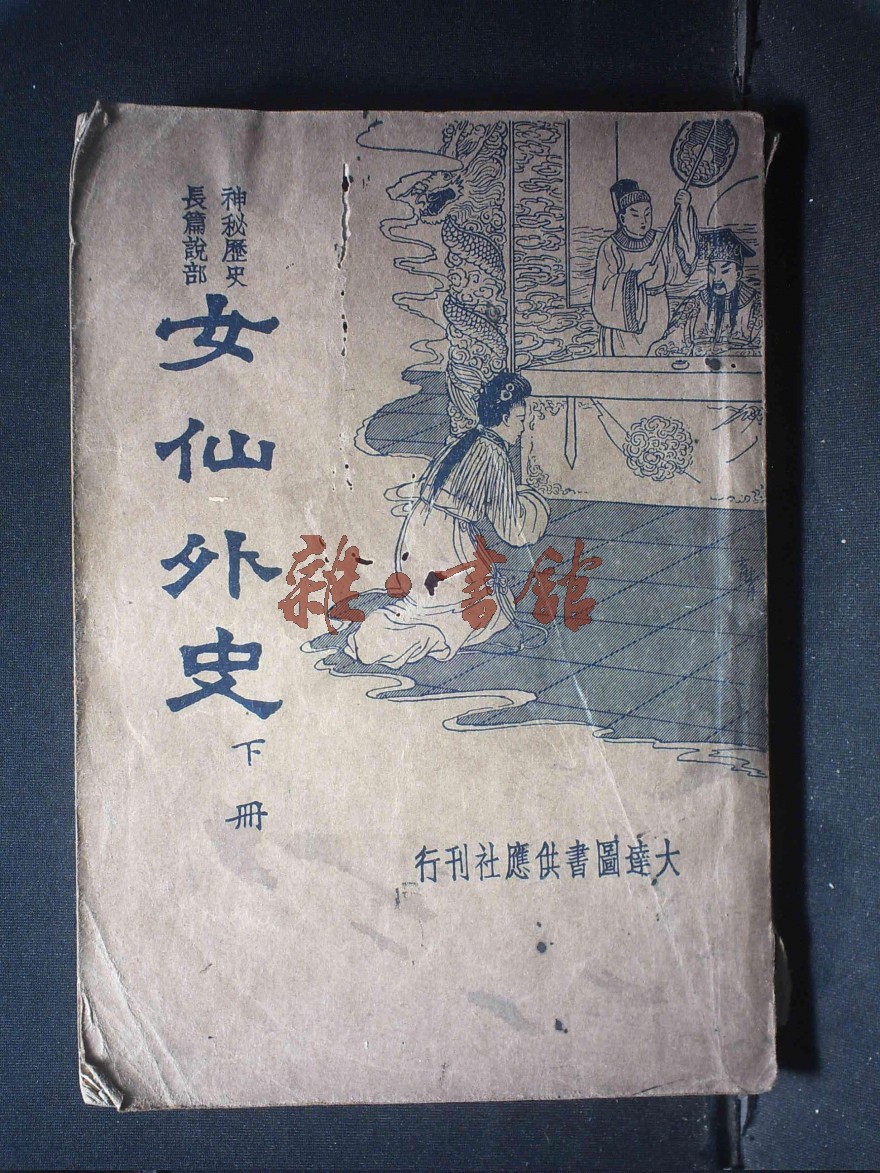 神秘歷史
長篇說部
女仙外史
下冊
大達圖書供應社刊行
雜·書館